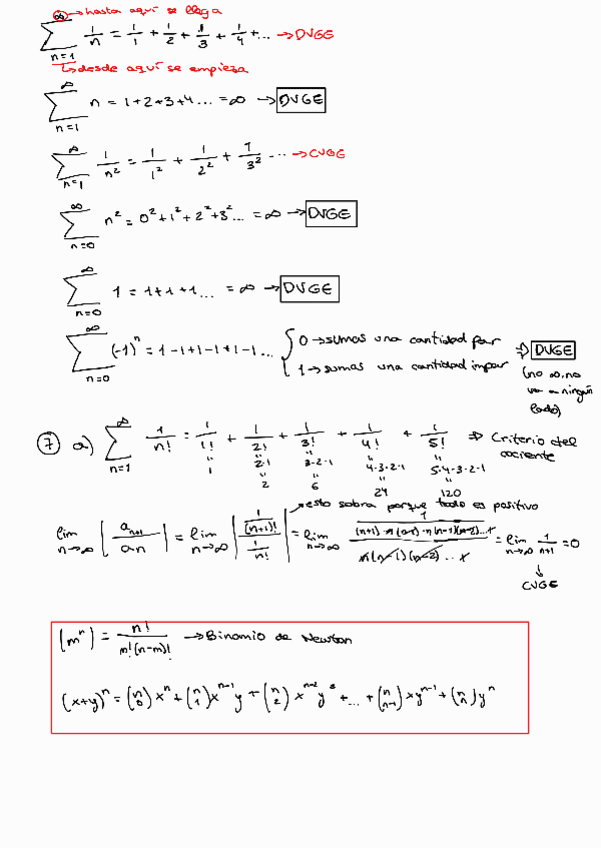 ∞ → hasta aquí se llega
∑ n=1 1/n = 1/1 + 1/2 + 1/3 + 1/4 + ... → DVGE
↳ desde aquí se empieza
∑ n=1 ∞ n = 1+2+3+4... = ∞ → DVGE
∑ n=1 ∞ 1/n² = 1/1² + 1/2² + 1/3² ... → CVGE
∑ n=0 ∞ n² = 0²+1²+2²+3²... = ∞ → DVGE
∑ n=0 ∞ 1 = 1+1+1... = ∞ → DVGE
∑ n=0 ∞ (-1)ⁿ = 1-1+1-1+1-1... { 0 → sumas una cantidad par
1 → sumas una cantidad impar ⇒ DVGE
(no ∞, no
va a ningún
lado)
7 a) ∑ n=1 ∞ 1/n! = 1/1! + 1/2! + 1/3! + 1/4! + 1/5! ⇒ Criterio del cociente
" 2·1 3·2·1 4·3·2·1 5·4·3·2·1
1 " " " "
2 6 24 120
→ esto sobra porque todo es positivo
lim n→∞ |aₙ₊₁/aₙ| = lim n→∞ |1/(n+1)! / 1/n!| = lim n→∞ = lim n→∞ 1/(n+1) = 0
↓
CVGE
(mⁿ) = n!/m!(n-m)! → Binomio de Newton
(x+y)ⁿ = (n 0) xⁿ + (n 1) xⁿ⁻¹ y + (n 2) xⁿ⁻² y² + ... + (n n-1) x yⁿ⁻¹ + (n n) yⁿ